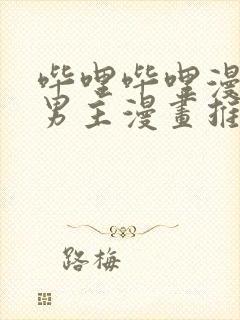 哔哩哔哩漫
男主漫畫推
路梅